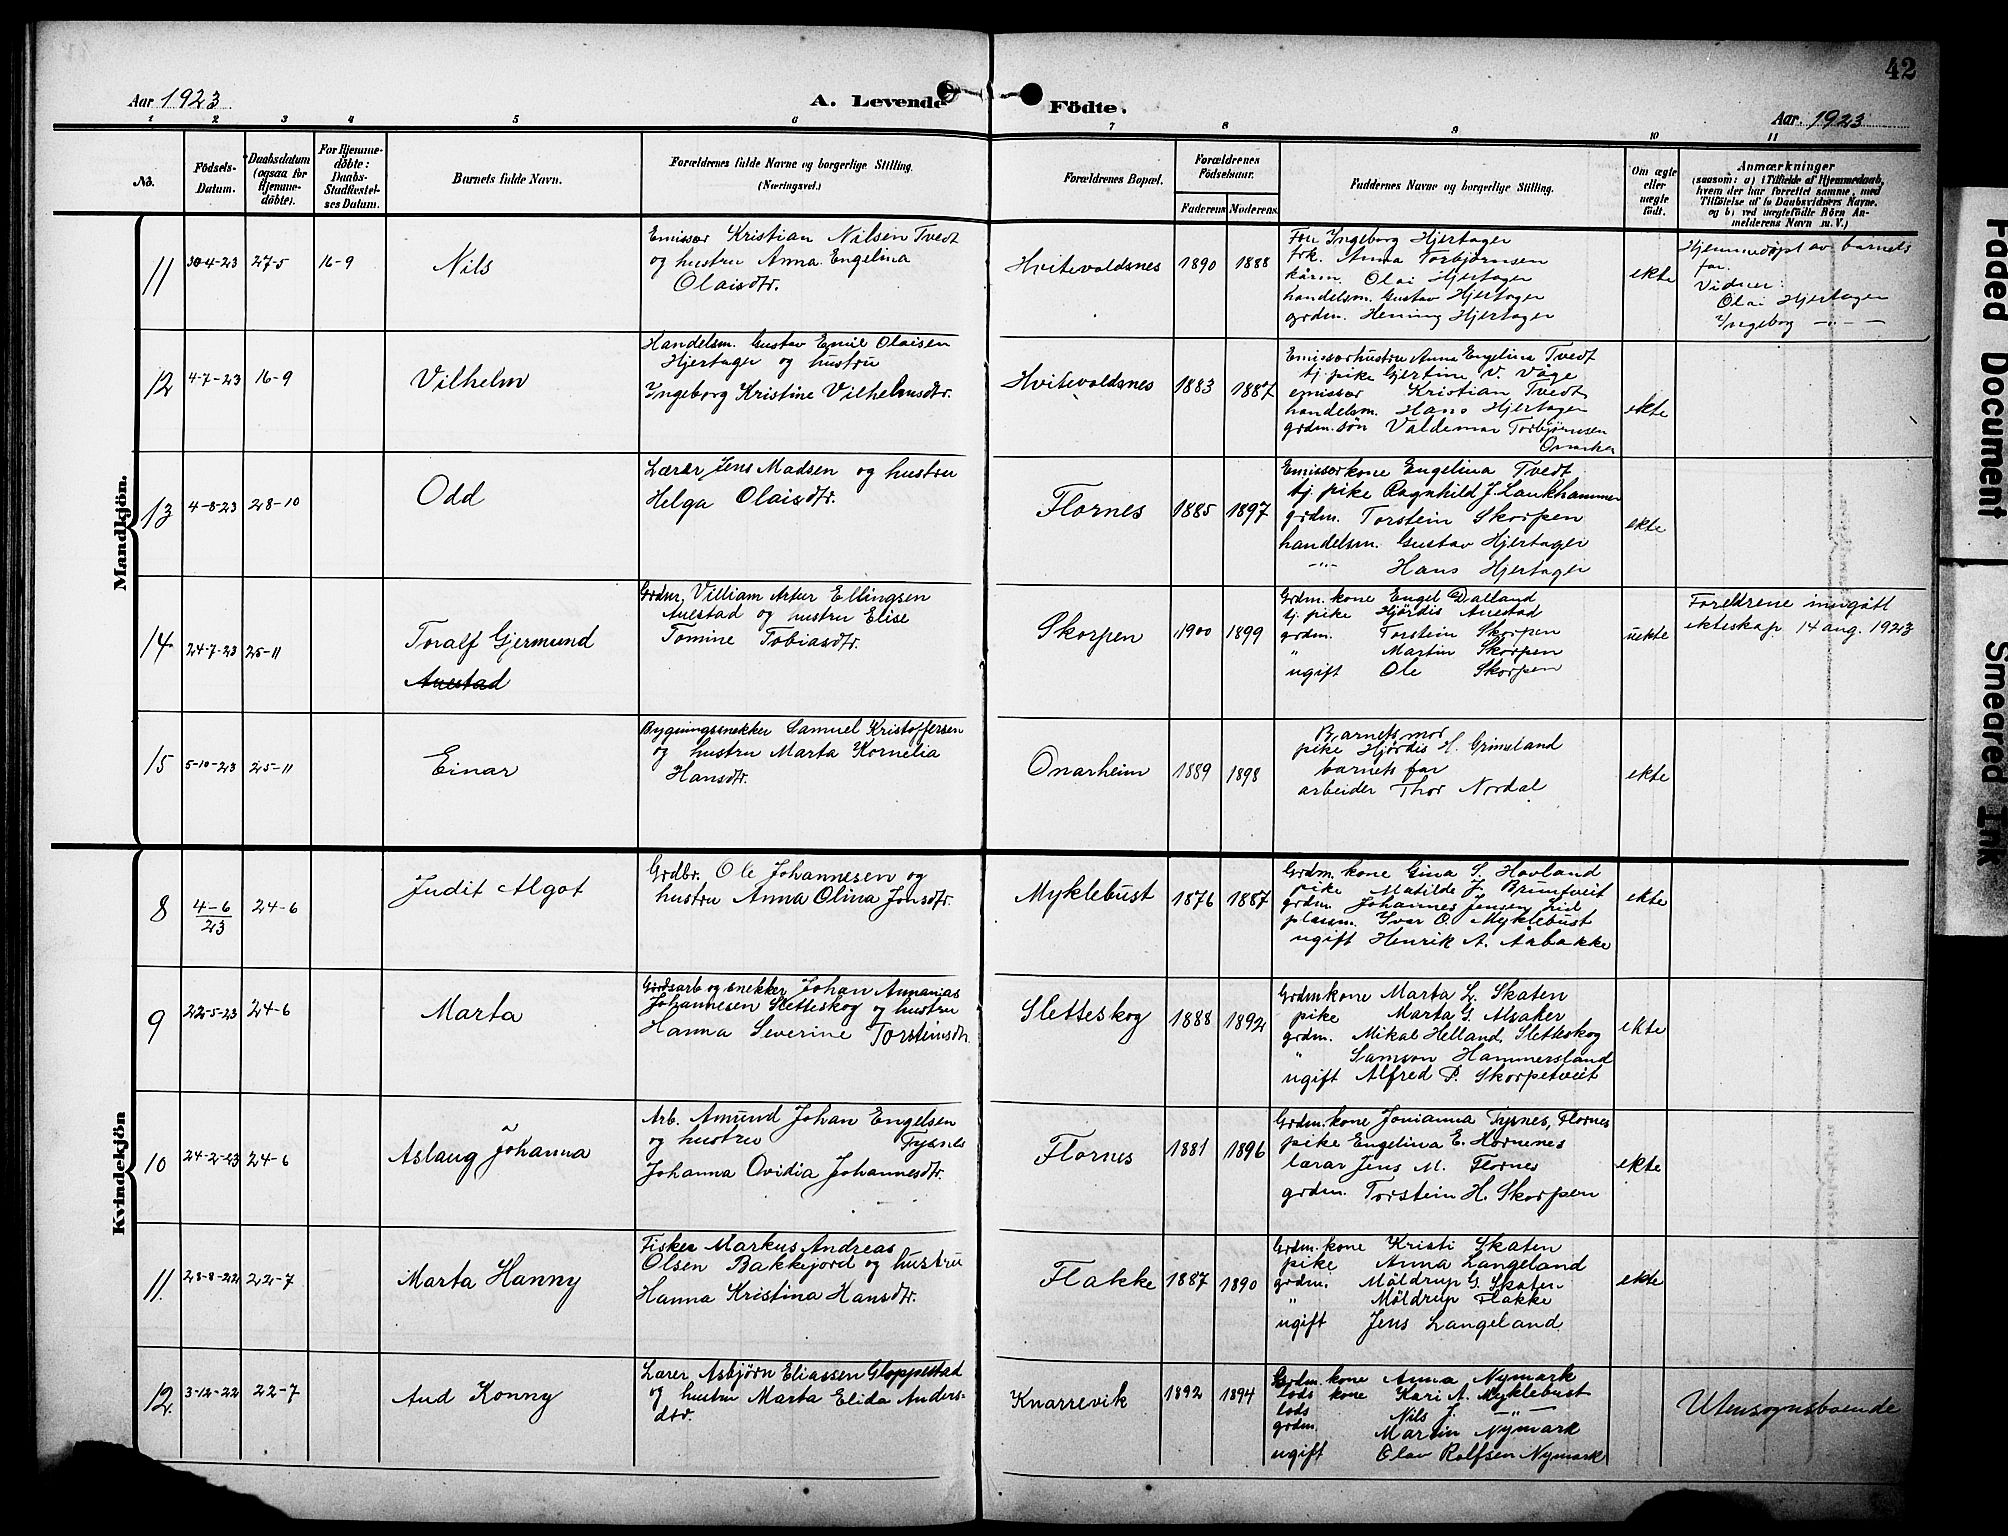 42
Aar 1923
A. Levende Födte.
Aar 1923
1 2 3 4 5 6 7 8 9 10 11
No.
Födsels-Datum.
Daabsdatum (ogsaa for Hjemme-döbte).
For Hjemme-döbte: Daabs-Stadfæstel-ses Datum.
Barnets fulde Navn.
Forældrenes fulde Navne og borgerlige Stilling. (Næringsvei.)
Forældrenes Bopæl.
Forældrenes Födselsaar.
Faderens Moderens.
Faddernes Navne og borgerlige Stilling.
Om ægte eller uægte födt.
Anmærkninger
(saasom: a) i Tilfælde af Hjemmedaab, hvem der har forrettet samme, med Tilföielse af to Daabsvidners Navne, og b) ved uægtefödte Börn An-melderens Navn m. V.)
Mandkjön.
11 30-4-23 27-5 16-9 Nils
Emissær Kristian Nilsen Tvedt
og hustru Anna Engelina
Olaisdtr.
Hvitevoldsnes 1890 1888
Fru Ingeborg Hjertager
frk. Anna Torbjørnsen
kårm. Olai Hjertager
handelsm. Gustav Hjertager
grdm. Hening Hjertager
ekte
Hjemmedøpt av barnets
far.
Vidner:
Olai Hjertager
Ingeborg -"-
12 4-7-23 16-9 Vilhelm
Handelsm. Gustav Emil Olaisen
Hjertager og hustru
Ingeborg Kristine Vilhelmsdtr.
Hvitevoldsnes 1883 1887
Emissærhustru Anna Engelina Tvedt
tj. pike Gjertine V. Våge
emissær Kristian Tvedt
handelsm. Hans Hjertager
grdm. søn Valdemar Torbjørnsen
ekte
13 4-8-23 28-10 Odd
Lærer Jens Madsen og hustru
Helga Olaisdtr.
Flornes 1885 1897
Emissærkone Engelina Tvedt
tj. pike Ragnhild J. Laukhammer
grdm. Torstein Skorpen
handelsm. Gustav Hjertager
-"- Hans Hjertager
ekte
14 24-7-23 25-11 Toralf Gjermund
Auestad
Grdm. Villiam Artur Ellingsen
Auestad og hustru Elise
Tomine Tobiasdtr.
Skorpen 1900 1899
Grdm. kone Engel Dalland
tj. pike Hjördis Auestad
grdm. Torstein Skorpen
" Martin Skorpen
ugift Ole Skorpen
uekte
Foreldrene inngått
ekteskap 14 aug. 1923
15 5-10-23 25-11 Einar
Bygningssnekker Samuel Kristoffersen
og hustru Marta Kornelia
Hansdtr.
Onarheim 1889 1898
Barnets mor
pike Hjördis H. Grimsland
barnets far
arbeider Thor Nordal
ekte
Kvindekjön
8 4-6 23 24-6 Judit Algot
Grdbr. Ole Johannesen og
hustru Anna Olina Jonsdtr.
Myklebust 1876 1887
Grdm. kone Gina S. Hovland
pike Matilde J. Brimtveit
grdm. Johannes Jensen Lid
plassm. Ivar O. Myklebust
ugift Henrik A. Årbakke
ekte
9 22-5-23 24-6 Marta
Gårdsarb og snekker Johan Annanias
Johannesen Sletteskog og hustru
Hanna Severine Torsteinsdtr.
Sletteskog 1888 1892
Grdmkone Marta L. Skaten
pike Marta G. Alsaker
grdm. Mikal Helland, Sletteskog
" Samson Hammersland
ugift Alfred P. Skorpetveit
ekte
10 24-2-23 24-6 Aslaug Johanna
Arb. Amund Johan Engelsen
og hustru Tysnes
Johanna Ovidia Johannesdtr.
Flornes 1881 1896
Grdm. kone Jonianna Tysnes, Flornes
pike Engelina E. Hornenes
lærar Jens M. Flornes
grdm. Torstein H. Skorpen
ekte
11. 28-8-22 22-7 Marta Hanny
Fisker Markus Andreas
Olsen Bakkejord og hustru
Hanna Kristina Hansdtr.
Flakke 1887 1890
Grdm. kone Kristi Skaten
pike Anna Langeland
grdm. Möldrup G. Skaten
" Möldrup Flakke
ugift Jens Langeland
ekte
12. 3-12-22 22-7 Aud Konny
Lærer Asbjørn Eliassen Gloppestad
og hustru Marta Elida Anders-
dtr.
Knarrevik 1892 1894
Grdm. kone Anna Nymark
lods kone Kari A. Myklebust
lods Nils J. -"-
grdm Martin Nymark
ugift Olav Rolfsen Nymark
Utensognsboende
Faded Document
Smeared Ink